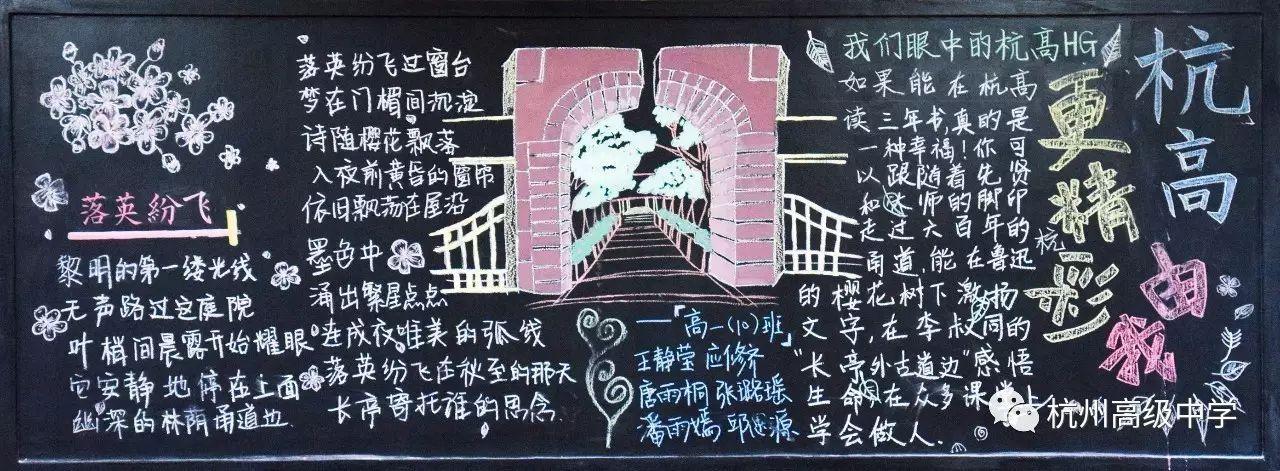 落英紛飞
黎明的第一缕光线
无声路过这庭院
叶梢间晨露开始耀眼
它安静地停在上面
幽深的林荫甬道边
落英纷飞过窗台
梦在门楣间沉淀
诗随樱花飘落
入夜前黄昏的窗帘
依旧飘荡在屋沿
墨色中
涌出繁星点点
连成夜唯美的弧线
落英纷飞在秋至的那天
长亭寄托谁的思念
——「高一(10)班」
王静莹 应修齐
唐雨桐 张璐瑶
潘雨嫣 邱源
我们眼中的杭高HG
如果能在杭高
读三年书,真的是
一种幸福!你可
以跟随着先贤
和大师的脚印
走过大百年的
甬道,能在鲁迅
的樱花树下激扬
文字,在李叔同的
“长亭外古道边”感悟
生命,在众多课堂上
学会做人.
杭高
由我
更精彩
杭
杭州高级中学